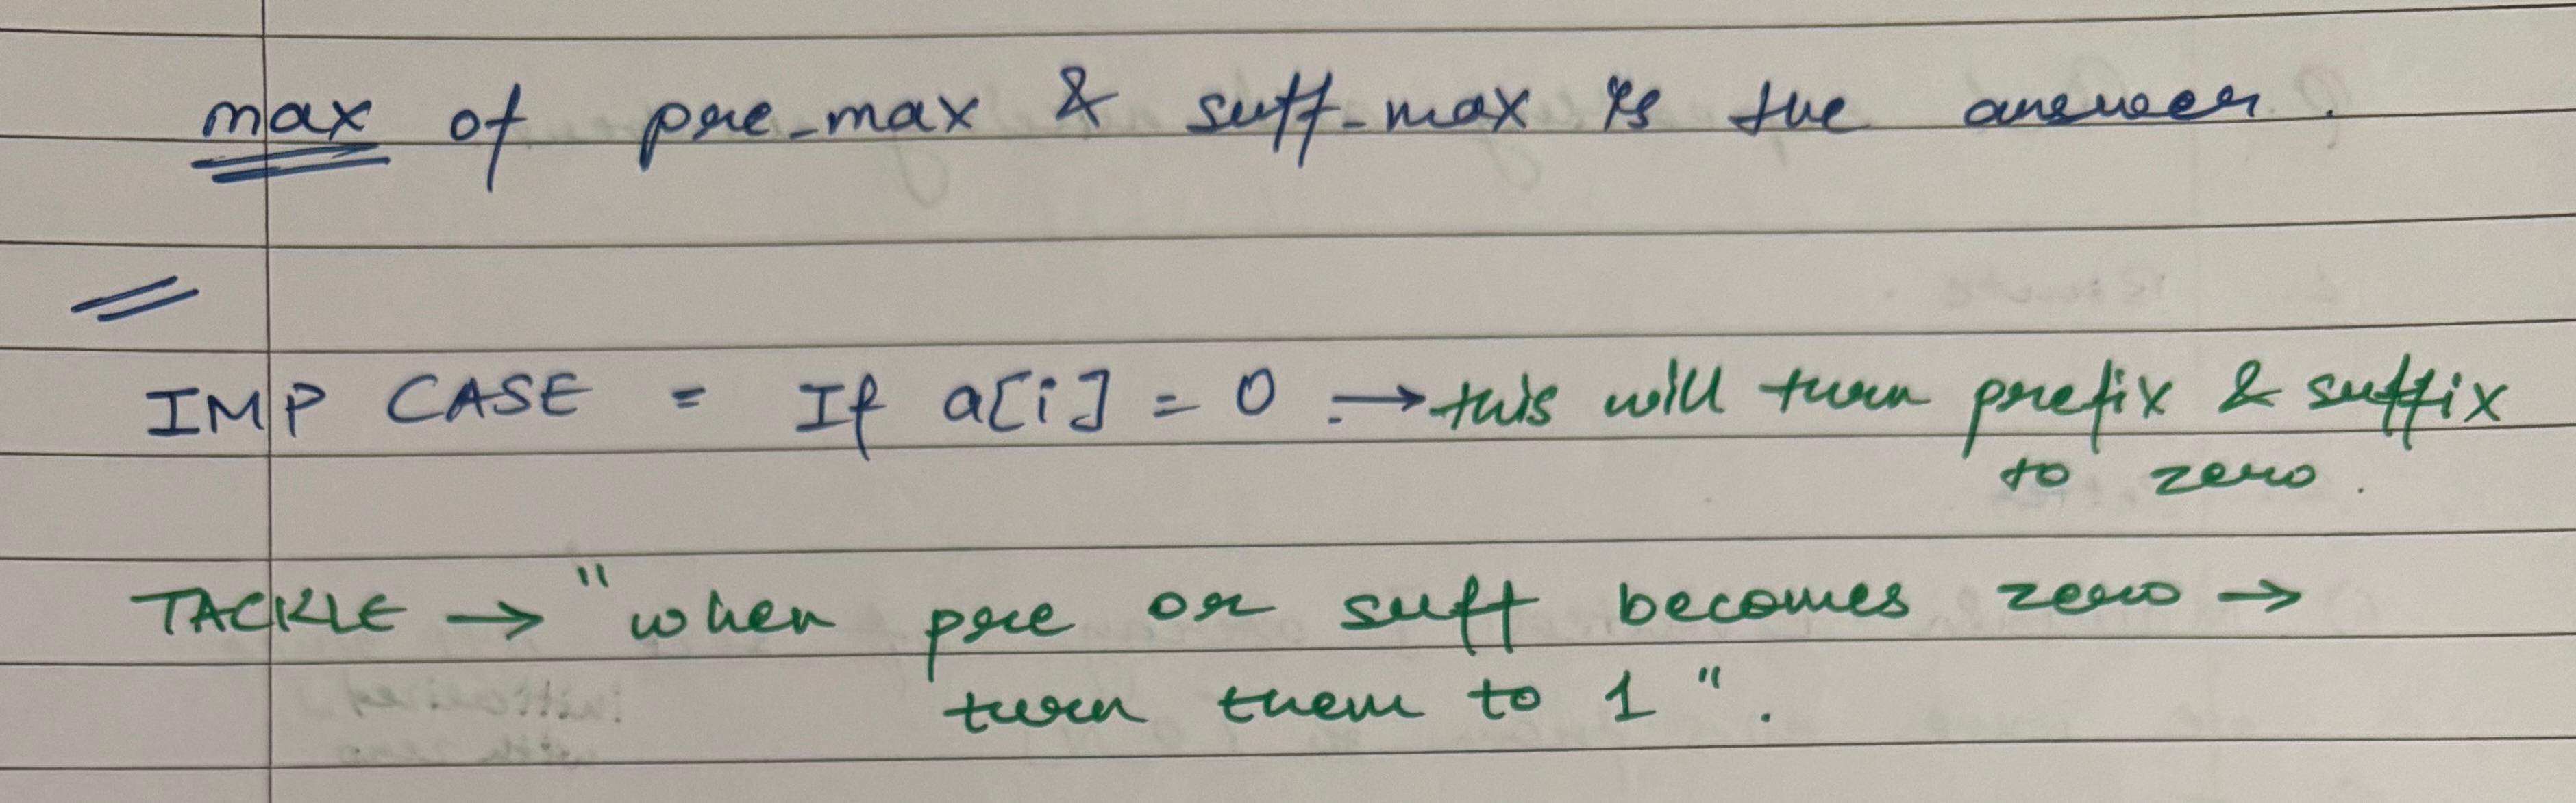 max of pre_max & suff-max is the answer.
IMP CASE = If a[i] = 0 → this will turn prefix & suffix
to zero.
TACKLE → "when pre or suff becomes zero →
turn them to 1".